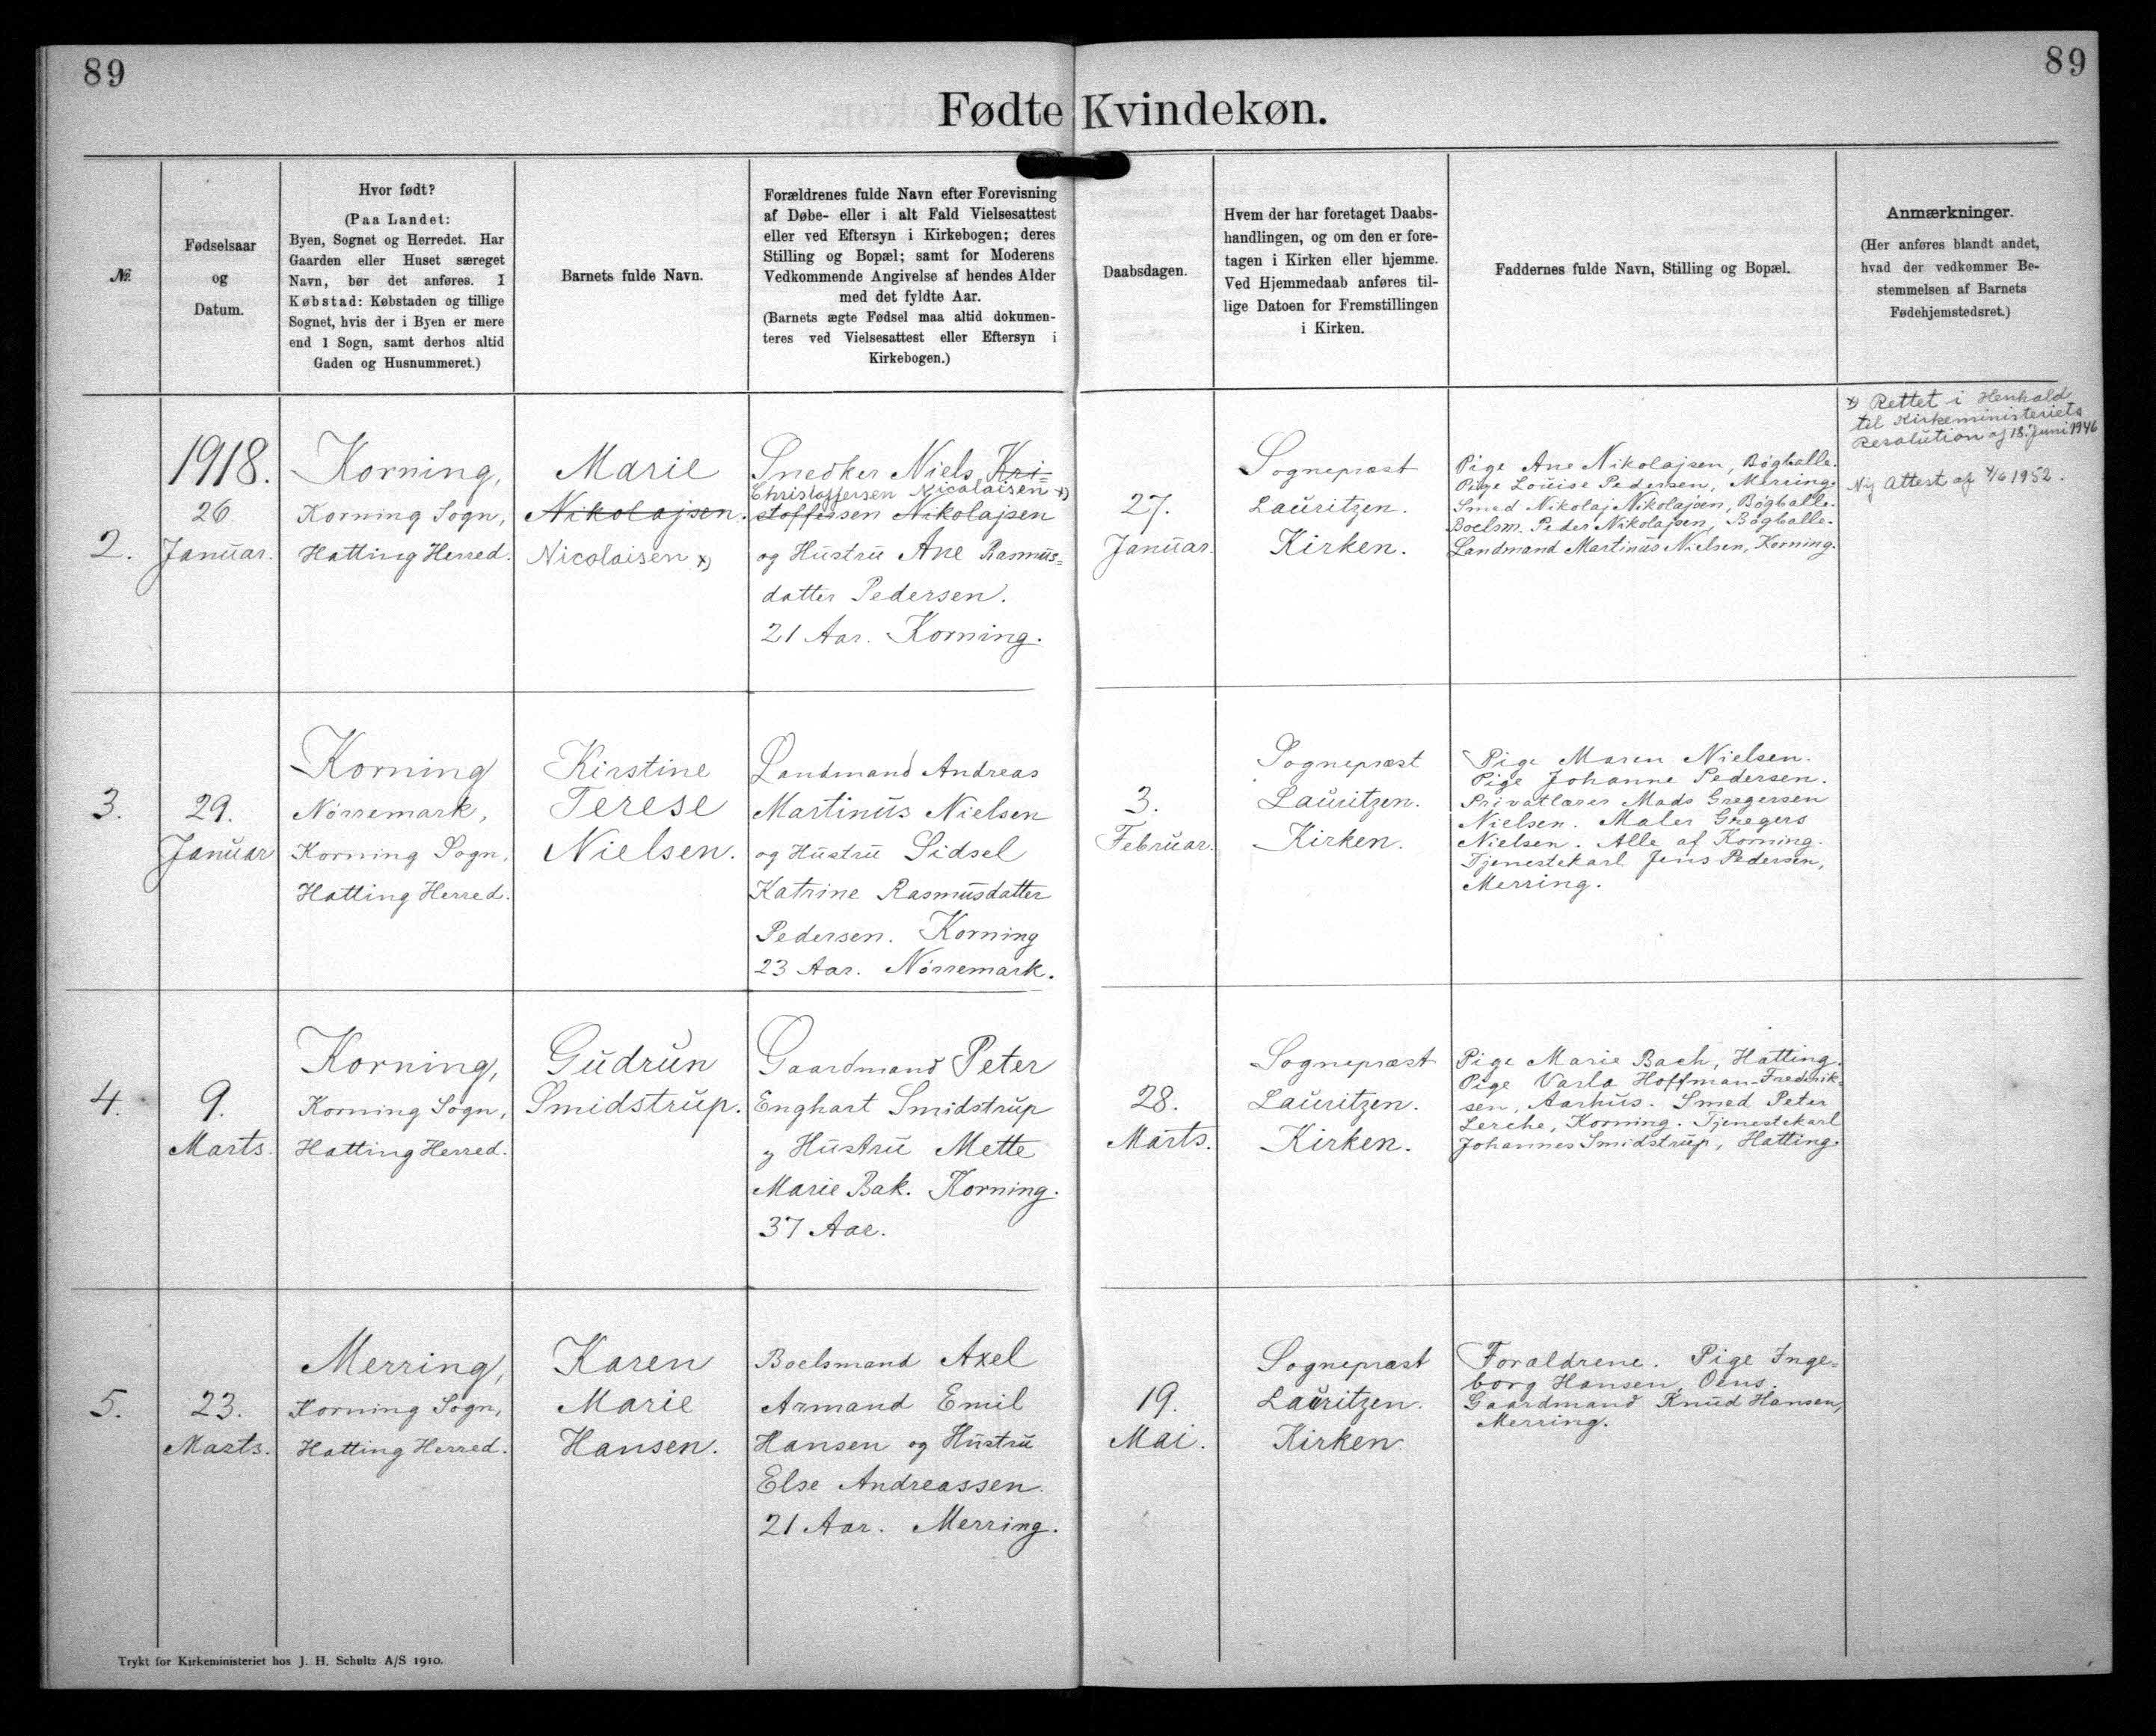 89
89
Fødte Kvindekøn.
№.
Fødselsaar
og
Datum.
Hvor født?
(Paa Landet:
Byen, Sognet og Herredet. Har
Gaarden eller Huset særeget
Navn, bør det anføres. I
Købstad: Købstaden og tillige
Sognet, hvis der i Byen er mere
end 1 Sogn, samt derhos altid
Gaden og Husnummeret.)
Barnets fulde Navn.
Forældrenes fulde Navn efter Forevisning
af Døbe- eller i alt Fald Vielsesattest
eller ved Eftersyn i Kirkebogen; deres
Stilling og Bopæl; samt for Moderens
Vedkommende Angivelse af hendes Alder
med det fyldte Aar.
(Barnets ægte Fødsel maa altid dokumen-
teres ved Vielsesattest eller Eftersyn i
Kirkebogen.)
Daabsdagen.
Hvem der har foretaget Daabs-
handlingen, og om den er fore-
tagen i Kirken eller hjemme.
Ved Hjemmedaab anføres til-
lige Datoen for Fremstillingen
i Kirken.
Faddernes fulde Navn, Stilling og Bopæl.
Anmærkninger.
(Her anføres blandt andet,
hvad der vedkommer Be-
stemmelsen af Barnets
Fødehjemstedsret.)
2.
1918.
26
Januar.
Korning,
Korning Sogn,
Hatting Herred.
Marie
Nikolajsen.
Nicolaisen x)
Snedker Niels Kri-
Christoffersen Nicolaisen x)
stoffersen Nikolajsen
og Hustru Ane Rasmus-
datter Pedersen.
21 Aar. Korning.
27.
Januar.
Sognepræst
Lauritzen.
Kirken.
Pige Ane Nikolajsen, Bøgballe.
Pige Louise Pedersen, Merring.
Smed Nikolaj Nikolajsen, Bøgballe.
Boelsm. Peder Nikolajsen, Bøgballe.
Landmand Martinus Nielsen, Korning.
x) Rettet i Henhold
til Kirkeministeriets
Resolution af 18. Juni 1946
Ny Attest af 4/6 1952.
3.
29.
Januar
Korning
Nørremark,
Korning Sogn,
Hatting Herred.
Kirstine
Terese
Nielsen.
Landmand Andreas
Martinus Nielsen
og Hustru Sidsel
Katrine Rasmusdatter
Pedersen. Korning
23 Aar. Nørremark.
3.
Februar.
Sognepræst
Lauritzen.
Kirken.
Pige Maren Nielsen.
Pige Johanne Pedersen.
Privatlærer Mads Gregersen
Nielsen. Maler Gregers
Nielsen. Alle af Korning.
Tjenestekarl Jens Pedersen,
Merring.
4.
9.
Marts.
Korning,
Korning Sogn,
Hatting Herred.
Gudrun
Smidstrup.
Gaardmand Peter
Enghart Smidstrup
og Hustru Mette
Marie Bak. Korning.
37 Aar.
28.
Marts.
Sognepræst
Lauritzen.
Kirken.
Pige Marie Bach, Hatting.
Pige Varla Hoffman-Frederik-
sen, Aarhus. Smed Peter
Lerche, Korning. Tjenestekarl
Johannes Smidstrup, Hatting.
5.
23.
Marts.
Merring,
Korning Sogn,
Hatting Herred.
Karen
Marie
Hansen.
Boelsmand Axel
Armand Emil
Hansen og Hustru
Else Andreassen.
21 Aar. Merring.
19.
Mai.
Sognepræst
Lauritzen.
Kirken.
Forældrene. Pige Inge-
borg Hansen, Oens.
Gaardmand Knud Hansen,
Merring.
Trykt for Kirkeministeriet hos J. H. Schultz A/S 1910.